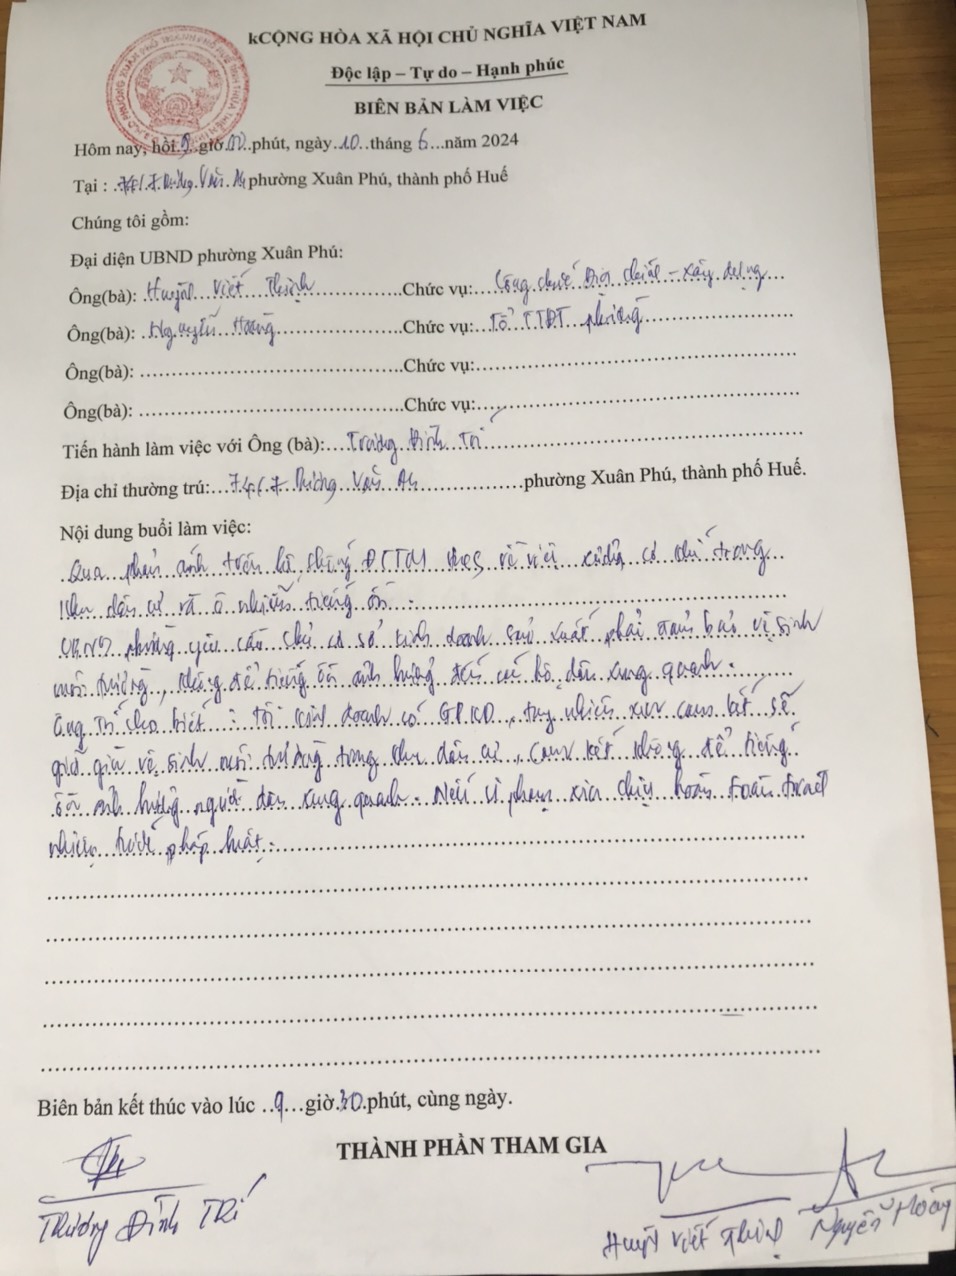 kCỘNG HÒA XÃ HỘI CHỦ NGHĨA VIỆT NAM
Độc lập – Tự do – Hạnh phúc
BIÊN BẢN LÀM VIỆC
Hôm nay, hồi 9 giờ 00 phút, ngày 10 tháng 6 năm 2024
Tại : Dương Văn An phường Xuân Phú, thành phố Huế
Chúng tôi gồm:
Đại diện UBND phường Xuân Phú:
Ông(bà): Huỳnh Viết Thịnh Chức vụ: Công chức Địa chính – Xây dựng
Ông(bà): Nguyễn Hoàng Chức vụ: Tổ TTĐT phường
Ông(bà): Chức vụ:
Ông(bà): Chức vụ:
Tiến hành làm việc với Ông (bà): Trương Đình Trí
Địa chỉ thường trú: Dương Văn An phường Xuân Phú, thành phố Huế.
Nội dung buổi làm việc:
Qua phản ánh trên hệ thống ĐTTM về việc cơ khí trong
khu dân cư và ô nhiễm tiếng ồn.
UBND phường yêu cầu chủ cơ sở kinh doanh sản xuất phải đảm bảo vệ sinh
môi trường, không để tiếng ồn ảnh hưởng đến các hộ dân xung quanh.
Ông Trí cho biết: tôi kinh doanh có GPKD, tuy nhiên xin cam kết sẽ
giữ gìn vệ sinh môi trường trong khu dân cư, cam kết không để tiếng
ồn ảnh hưởng người dân xung quanh. Nếu vi phạm xin chịu hoàn toàn trách
nhiệm trước pháp luật.
Biên bản kết thúc vào lúc 9 giờ 30 phút, cùng ngày.
THÀNH PHẦN THAM GIA
Trương Đình Trí
Huỳnh Viết Thịnh Nguyễn Hoàng